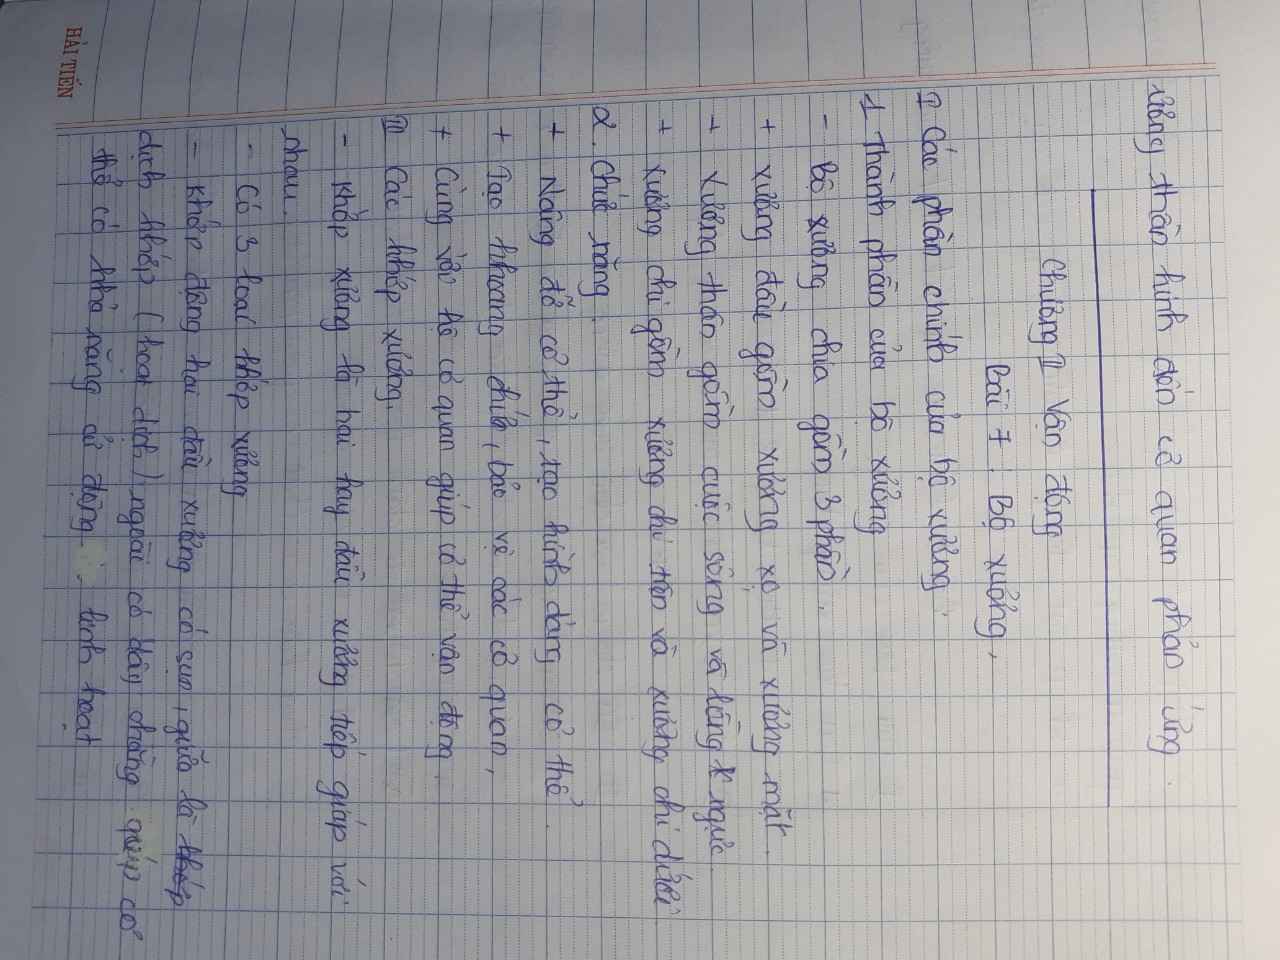 xung thần kinh đến cơ quan phản ứng.
Chương II Vận động
Bài 7: Bộ xương.
I Các phần chính của bộ xương.
1 Thành phần của bộ xương
- Bộ xương chia gồm 3 phần.
+ Xương đầu gồm xương sọ và xương mặt.
+ Xương thân gồm cuộc sống và lồng ngực.
+ Xương chi gồm xương chi trên và xương chi dưới
2. Chức năng.
+ Nâng đỡ cơ thể, tạo hình dáng cơ thể.
+ Tạo khoang chứa, bảo vệ các cơ quan.
+ Cùng với hệ cơ quan giúp cơ thể vận động.
II Các khớp xương.
- Khớp xương là hai hay đầu xương tiếp giáp với
nhau.
- Có 3 loại khớp xương
- Khớp động hai đầu xương có sụn, giữa là khớp
dịch khớp (hoạt dịch) ngoài có dây chằng giúp cơ
thể có khả năng cử động linh hoạt
HẢI TIẾN